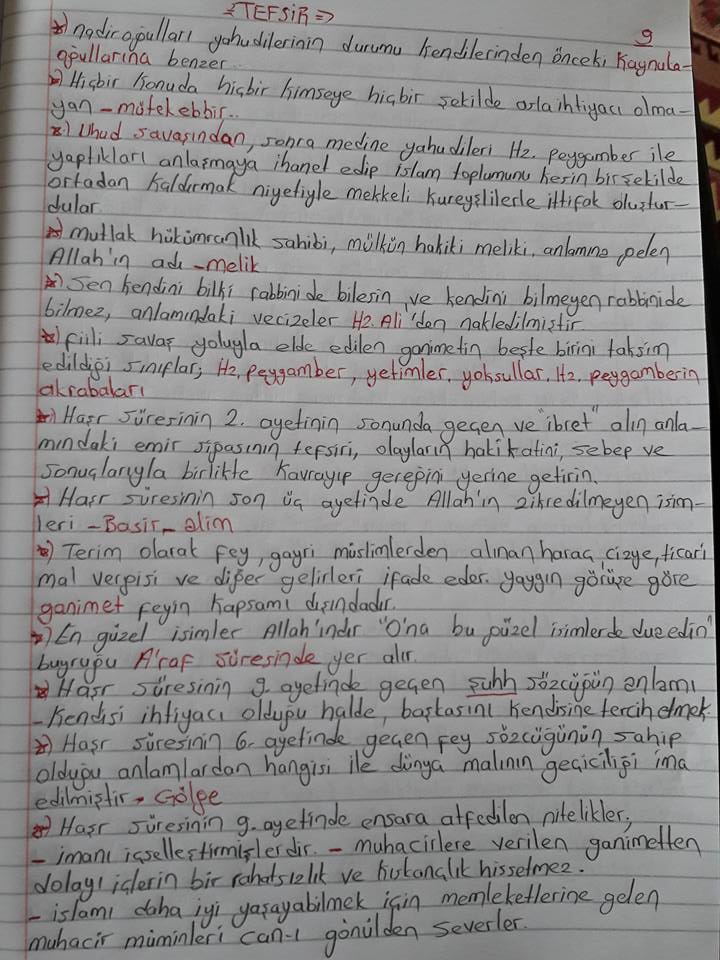 =TEFSiR=>
9
*) nadiroğulları yahudilerinin durumu kendilerinden önceki Kaynuka-
oğullarına benzer..
*) Hiçbir konuda hiçbir kimseye hiçbir şekilde asla ihtiyacı olma-
yan - mütekebbir..
*) Uhud savaşından, sonra medine yahudileri Hz. peygamber ile
yaptıkları anlaşmaya ihanet edip islam toplumunu kesin bir şekilde
ortadan kaldırmak niyetiyle mekkeli kureyşlilerle ittifak oluştur-
dular.
*) mutlak hükümranlık sahibi, mülkün hakiki meliki, anlamına gelen
Allah'ın adı - melik
*) Sen kendini bilki rabbini de bilesin, ve kendini bilmeyen rabbinide
bilmez, anlamındaki vecizeler Hz. Ali'den nakledilmiştir
*) fiili savaş yoluyla elde edilen ganimetin beşte birini taksim
edildiği sınıflar; Hz, peygamber, yetimler, yoksullar, Hz. peygamberin
akrabaları
*) Haşr sûresinin 2. ayetinin sonunda geçen ve "ibret" alın anla-
mındaki emir sigasının tefsiri, olayların hakikatini, sebep ve
sonuçlarıyla birlikte kavrayıp gereğini yerine getirin.
*) Haşr sûresinin son üç ayetinde Allah'ın zikredilmeyen isim-
leri - Basir - alim
*) Terim olarak fey, gayri müslimlerden alınan haraç, cizye, ticari
mal vergisi ve diğer gelirleri ifade eder. yaygın görüşe göre
ganimet feyin kapsamı dışındadır.
*) En güzel isimler Allah'ındır "O'na bu güzel isimlerde dua edin"
buyruğu A'raf sûresinde yer alır.
*) Haşr sûresinin 9. ayetinde geçen şuhh sözcüğün anlamı
- Kendisi ihtiyacı olduğu halde, başkasını kendisine tercih etmek
*) Haşr sûresinin 6. ayetinde geçen fey sözcüğünün sahip
olduğu anlamlardan hangisi ile dünya malının geçiciliği ima
edilmiştir → Gölge
*) Haşr sûresinin 9. ayetinde ensara atfedilen nitelikler;
- imanı içselleştirmişlerdir. - muhacirlere verilen ganimetten
dolayı içlerin bir rahatsızlık ve kıskançlık hissetmez.
- islamı daha iyi yaşayabilmek için memleketlerine gelen
muhacir müminleri can-ı gönülden severler.